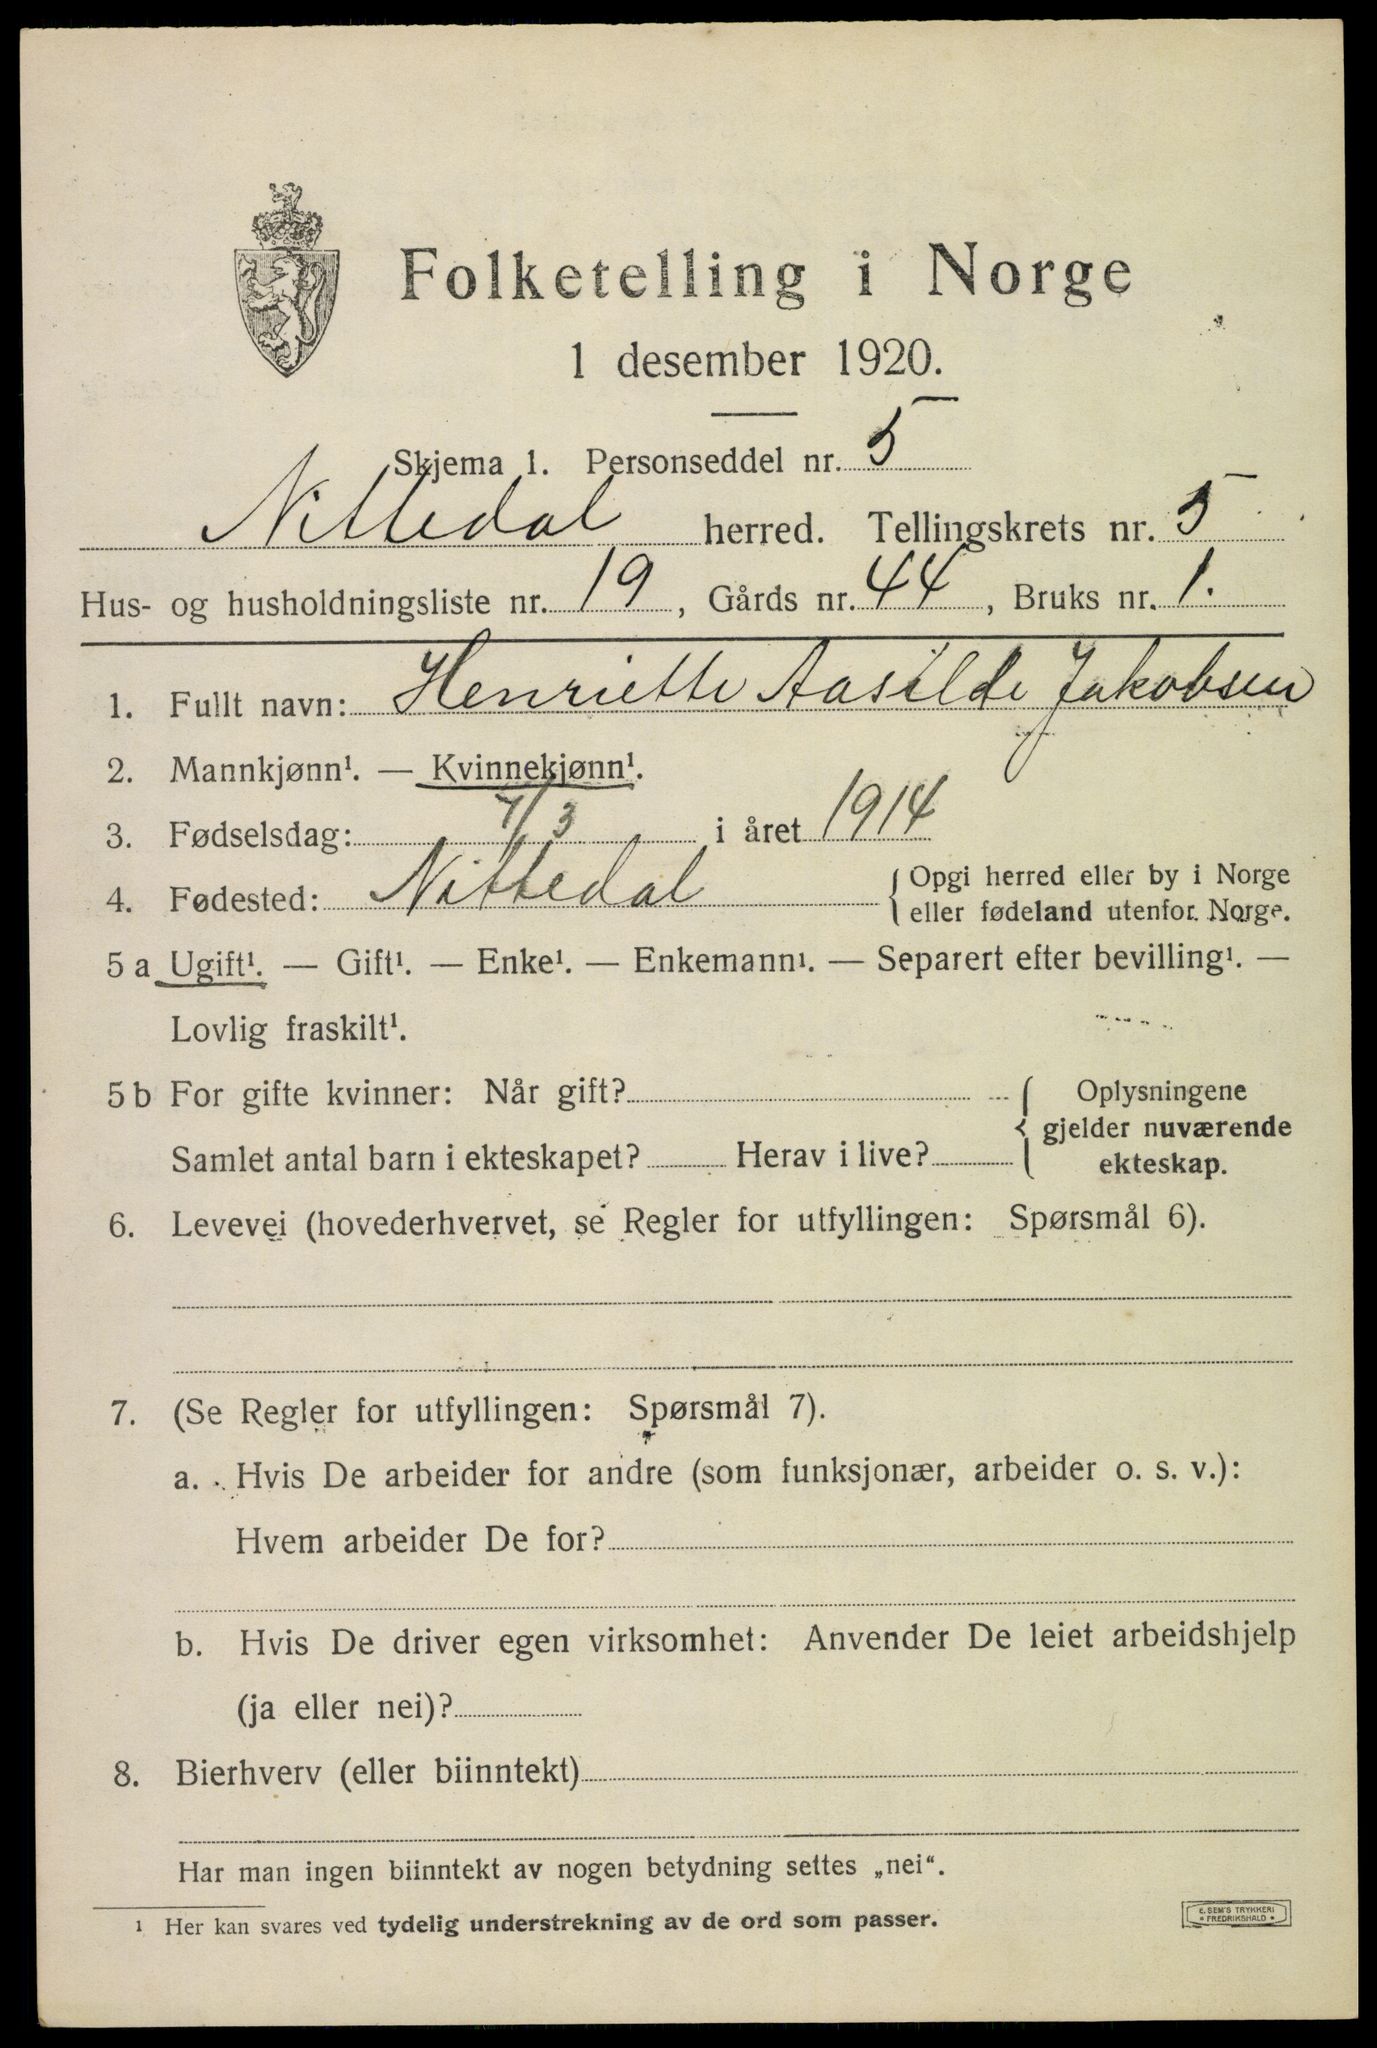 Folketelling i Norge
1 desember 1920.
Skjema 1. Personseddel nr. 5
Nittedal herred. Tellingskrets nr. 5
Hus- og husholdningsliste nr. 19, Gårds nr. 44, Bruks nr. 1.
1. Fullt navn: Henriette Aasilde Jakobsen
2. Mannkjønn¹. — Kvinnekjønn¹.
3. Fødselsdag: 7/3 i året 1914
4. Fødested: Nittedal { Opgi herred eller by i Norge
eller fødeland utenfor Norge.
5 a Ugift¹. — Gift¹. — Enke¹. — Enkemann¹. — Separert efter bevilling¹. —
Lovlig fraskilt¹.
5 b For gifte kvinner: Når gift? { Oplysningene
gjelder nuværende
Samlet antal barn i ekteskapet? Herav i live? ekteskap.
6. Levevei (hovederhvervet, se Regler for utfyllingen: Spørsmål 6).
7. (Se Regler for utfyllingen: Spørsmål 7).
a. Hvis De arbeider for andre (som funksjonær, arbeider o. s. v.):
Hvem arbeider De for?
b. Hvis De driver egen virksomhet: Anvender De leiet arbeidshjelp
(ja eller nei)?
8. Bierhverv (eller biinntekt)
Har man ingen biinntekt av nogen betydning settes „nei“.
¹ Her kan svares ved tydelig understrekning av de ord som passer.
E. SEM'S TRYKKERI
* FREDRIKSHALD *